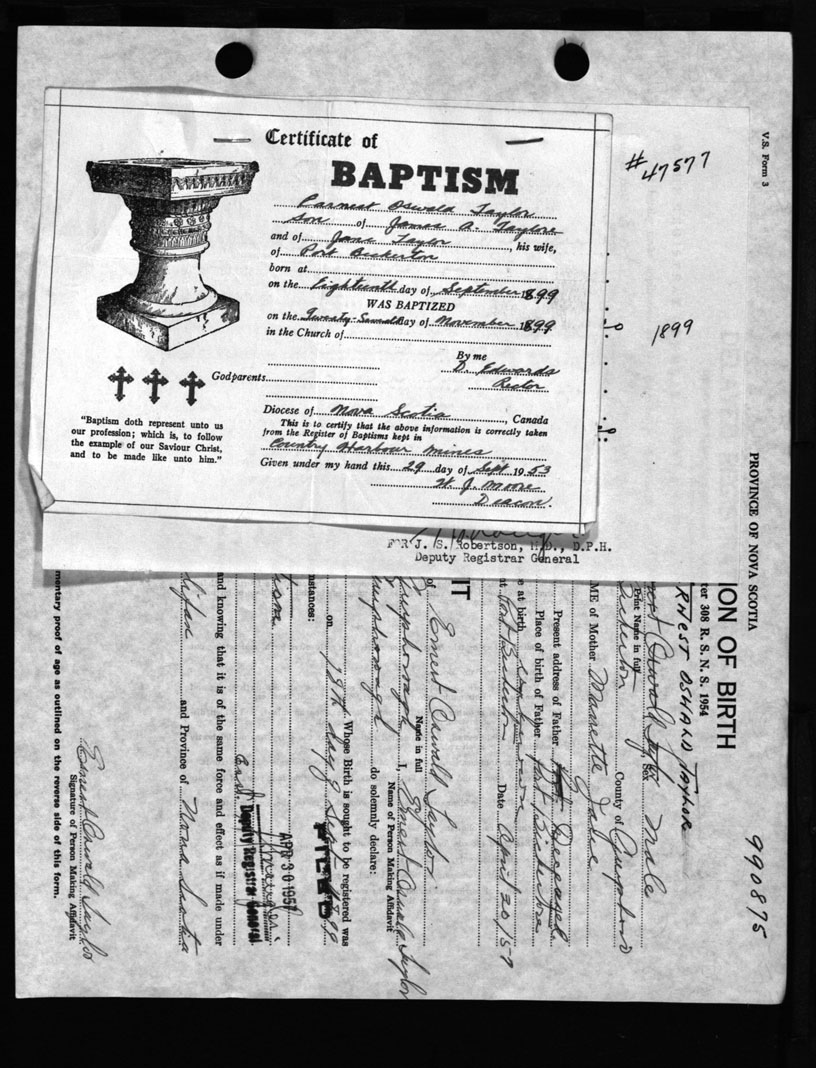 Certificate of
BAPTISM
Earnest Oswald Taylor
son of James A. Taylor
and of Jane Taylor, his wife,
of Port Beckerton
born at
on the Eighteenth day of September 1899
WAS BAPTIZED
on the Twenty-Second day of November 1899
in the Church of
By me
D. Edwards
Rector
Godparents
Diocese of Nova Scotia, Canada
This is to certify that the above information is correctly taken
from the Register of Baptisms kept in
Country Harbour Mines
Given under my hand this 29 day of Sept 1953
W. J. Moore
Deacon.
"Baptism doth represent unto us
our profession; which is, to follow
the example of our Saviour Christ,
and to be made like unto him."
# 47577
1899
V.S. Form 3
FOR J. S. Robertson, M.D., D.P.H.
Deputy Registrar General
PROVINCE OF NOVA SCOTIA
990875
ION OF BIRTH
ter 308 R. S. N. S. 1954
RNEST OSWALD TAYLOR
Print Name in full
Oswald Taylor Sex Male
Bickerton County of Guysboro
ME of Mother Janie
Present address of Father Deceased
Place of birth of Father Port Bickerton
e at birth
Port Bickerton Date April 20/57
of Ernest Oswald Taylor
Name in full
Guysborough I, Ernest Oswald Taylor
Name of Person Making Affidavit
Guysborough do solemnly declare:
Whose Birth is sought to be registered was
on 18th day of Sept 1899
FILED
APR 30 1957
Deputy Registrar General
and knowing that it is of the same force and effect as if made under
lifax and Province of Nova Scotia
Ernest Oswald Taylor
Signature of Person Making Affidavit
mentary proof of age as outlined on the reverse side of this form.